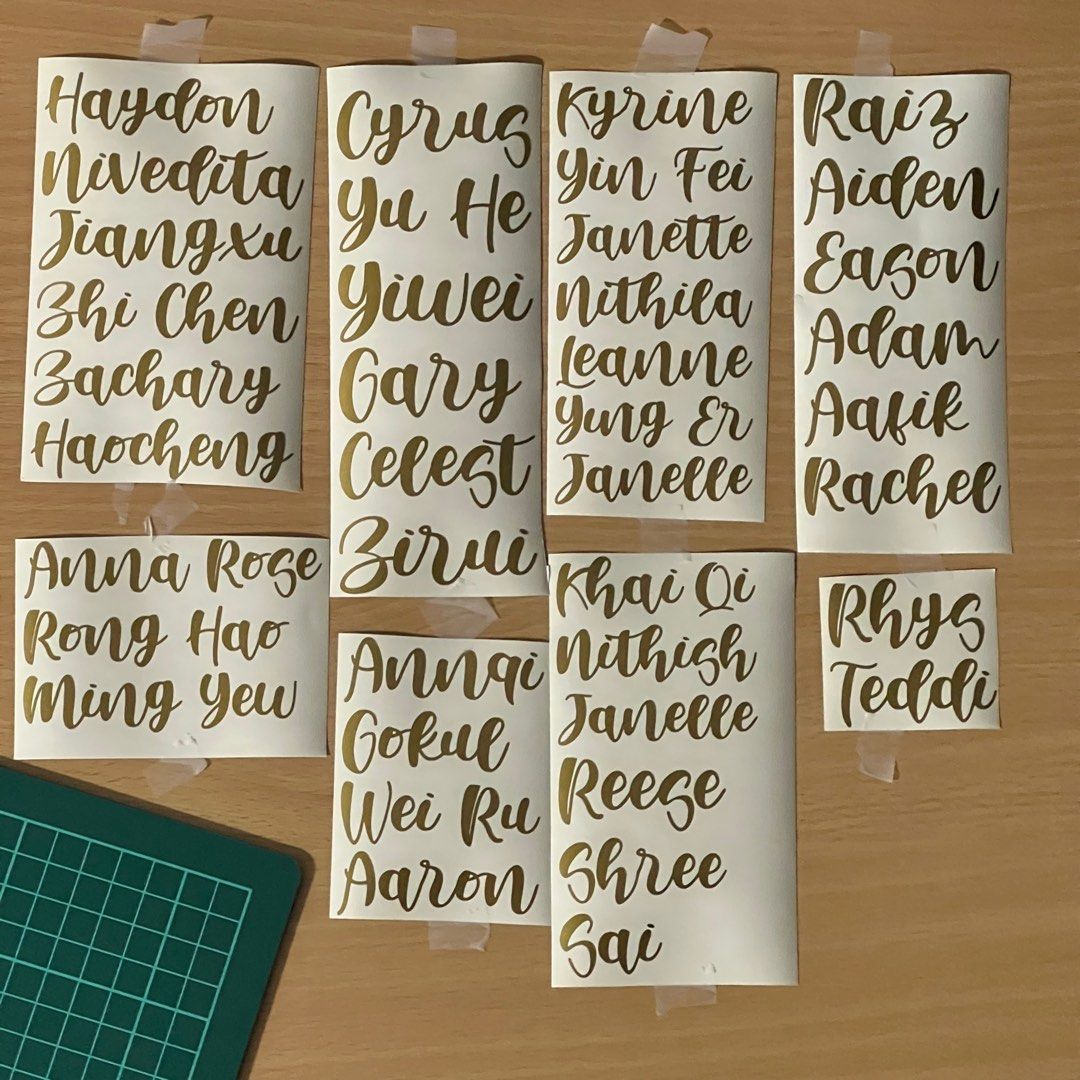 Haydon
Nivedita
Jiangxu
Zhi Chen
Zachary
Haocheng
Cyrus
Yu He
Yiwei
Gary
Celest
Zirui
Kyrine
Yin Fei
Janette
Nithila
Leanne
Yung Er
Janelle
Raiz
Aiden
Eason
Adam
Aafik
Rachel
Anna Rose
Rong Hao
Ming Yew
Annqi
Gokul
Wei Ru
Aaron
Khai Qi
Nithish
Janelle
Reese
Shree
Sai
Rhys
Teddi